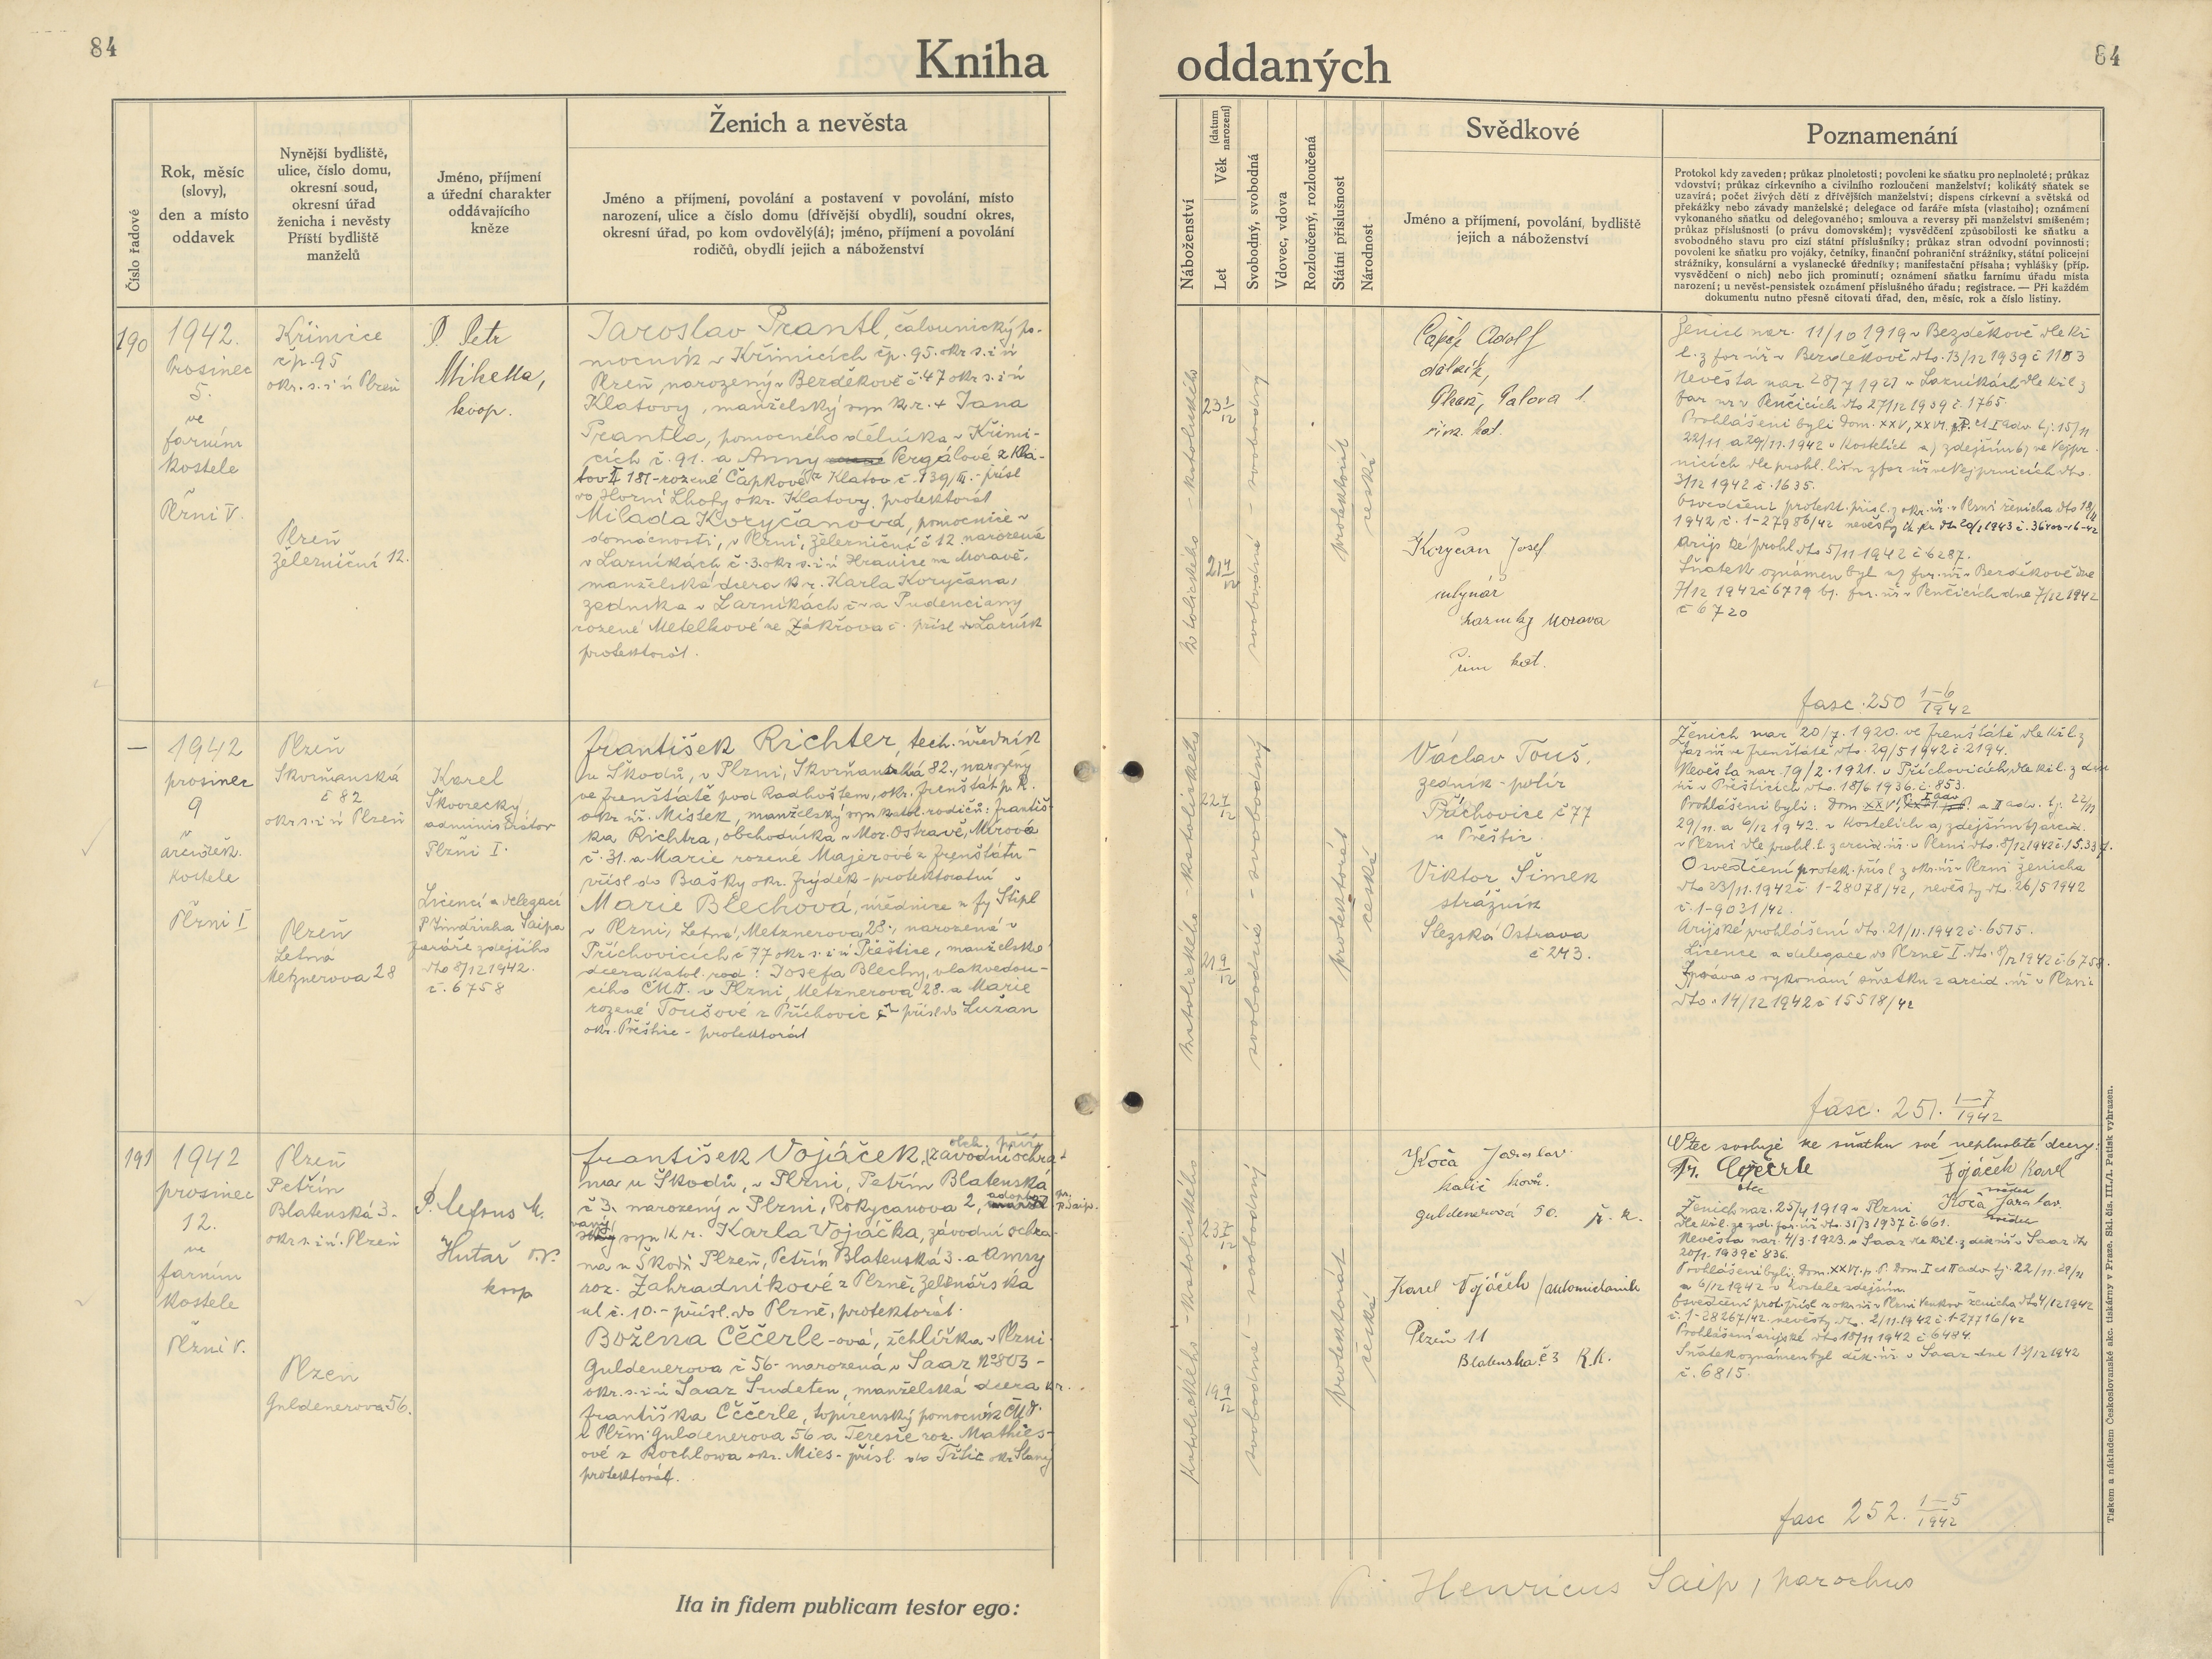 84
Kniha
oddaných
84
Číslo řadové
Rok, měsíc
(slovy),
den a místo
oddavek
Nynější bydliště,
ulice, číslo domu,
okresní soud,
okresní úřad
ženicha i nevěsty
Příští bydliště
manželů
Jméno, příjmení
a úřední charakter
oddávajícího
kněze
Ženich a nevěsta
Jméno a příjmení, povolání a postavení v povolání, místo
narození, ulice a číslo domu (dřívější obydlí), soudní okres,
okresní úřad, po kom ovdovělý(á); jméno, příjmení a povolání
rodičů, obydlí jejich a náboženství
Náboženství
Let
Věk
(datum
narození)
Svobodný, svobodná
Vdovec, vdova
Rozloučený, rozloučená
Státní příslušnost
Národnost
Svědkové
Jméno a příjmení, povolání, bydliště
jejich a náboženství
Poznamenání
Protokol kdy zaveden; průkaz plnoletosti; povolení ke sňatku pro neplnoleté; průkaz
vdovství; průkaz církevního a civilního rozloučení manželství; kolikátý sňatek se
uzavírá; počet živých dětí z dřívějších manželství; dispens církevní a světská od
překážky nebo závady manželské; delegace od faráře místa (vlastního); oznámení
vykonaného sňatku od delegovaného; smlouva a reversy při manželství smíšeném;
průkaz příslušnosti (o právu domovském); vysvědčení způsobilosti ke sňatku a
svobodného stavu pro cizí státní příslušníky; průkaz stran odvodní povinnosti;
povolení ke sňatku pro vojáky, četníky, finanční pohraniční strážníky, státní policejní
strážníky, konsulární a vyslanecké úředníky; manifestační přísaha; vyhlášky (příp.
vysvědčení o nich) nebo jich prominutí; oznámení sňatku farnímu úřadu místa
narození; u nevěst-pensistek oznámení příslušného úřadu; registrace. — Při každém
dokumentu nutno přesně citovati úřad, den, měsíc, rok a číslo listiny.
190
1942.
Prosinec
5.
ve
farním
kostele
Plzni V.
Křimice
čp. 95
okr. s. i ú Plzeň
Plzeň
Železniční 12.
P. Petr
Mihella,
koop.
Jaroslav Prantl, čalounický po-
mocník v Křimicích čp. 95. okr s. i ú
Plzeň narozený v Bezděkově č. 47 okr s. i ú
Klatovy, manželský syn k. r. + Jana
Prantla, pomocného dělníka v Křimi-
cích č. 91. a Anny Pergálové z Kla-
tov II 181 - rozené Čapkové z Klatov č. 139/III. - přísl
do Horní Lhoty okr. Klatovy, protektorát
Milada Koryčanová, pomocnice v
domácnosti, v Plzni, Železniční č 12 narozená
v Lazníkách č. 3. okr s. i ú Hranice na Moravě,
manželská dcera k. r. Karla Koryčana,
zedníka v Lazníkách č - a Pudenciany
rozené Metelkové ze Zákřova č. přísl do Lazník
protektorát.
katolického - katolického
23 1/12
21 4/12
svobodná - svobodný
protektorát
česká
Čapek Adolf
dělník,
řím. kat.
Korycan Josef
mlynář
Lazniky Morava
řím kat.
Ženich nar. 11/10 1919 v Bezděkově dle kř
l. z far. úř. v Bezděkově dto. 13/12 1939 č 1183
Nevěsta nar 28/7 1921 v Lazníkách dle kř l z
far úř v Penčicích dto 27/12 1939 č. 1765.
Prohlášeni byli dom. XXV, XXVI. p. P. et I adv. tj. 15/11
22/11 a 29/11. 1942 v kostelích a) zdejším b) ve Vejpr-
nicích dle prohl. list. z far úř ve Vejprnicích dto.
3/12 1942 č. 1635.
Osvědčení protekt. přísl. z okr. úř. v Plzni ženicha dto 18/11
1942 č. 1-27986/42
Arijské prohl. dto 5/11 1942 č 6287.
Sňatek oznámen byl a) far. úř. v Bezděkově dne
7/12 1942 č 6719 b). far. úř v Penčicích dne 7/12 1942
č 6720
fasc. 250 1-6/1942
—
1942
prosinec
9
arciděk.
kostele
Plzni I
Plzeň
Skvrňanská
č 82
okr. s. i ú Plzeň
Plzeň
Letná
Metznerova 28
Karel
Škvorecký,
administrátor
Plzni I.
Licencí a delegací
P. Jindřicha Šaipa
faráře zdejšího
dto 8/12 1942.
č. 6758
František Richter, tech. úředník
u Škodů, v Plzni, Skvrňanská 82., narozený
ve Frenštátě pod Radhoštem, okr. Frenštát p. R.
okr. úř. Místek, manželský syn katol. rodičů: Františ-
ka Richtra, obchodníka v Mor. Ostravě, Mírová
č. 31. a Marie rozené Majerové z Frenštátu -
přísl do Bašky okr. Frýdek - protektorátní
Marie Blechová, úřednice u fy Stipl
v Plzni, Letná, Metznerova 28., narozená v
Příchovicích č 77 okr s. i ú Přeštice, manželská
dcera katol. rod: Josefa Blechy, vlakvedou-
cího ČMD. v Plzni, Metznerova 28. a Marie
rozené Toušové z Příchovic č - přísl. do Lužan
okr. Přeštice - protektorát
katolického - katolického
22 4/12
21 9/12
svobodná - svobodný
protektorát
česká
Václav Touš,
zedník - polír
Příchovice č 77
u Přeštic.
Viktor Šimek
strážník
Slezská Ostrava
č 243.
Ženich nar 20/7. 1920. ve Frenštátě dle kř l z
far úř ve Frenštátě dto. 29/5 1942 č. 2194.
Nevěsta nar. 19/2. 1921. v Příchovicích dle kř l. z děk
úř v Přešticích dto. 18/6 1936. č. 853.
Prohlášeni byli: Dom XXVI, p. P. I adv. a II adv. tj. 22/11
29/11. a 6/12 1942. v kostelích a) zdejším b) arcid.
v Plzni dle prohl. l. z arcid. úř. v Plzni dto. 8/12 1942 č. 15.337.
Osvědčení protek. přísl z okr. úř v Plzni ženicha
dto 23/11. 1942 č. 1-28078/42, nevěsty dto. 26/5 1942
č. 1-9031/42.
Arijské prohlášení dto. 21/11. 1942 č. 6515.
Licence a delegace do Plzně I. dto. 8/12 1942 č. 6758.
Zpráva o vykonání sňatku z arcid. úř v Plzni
dto. 14/12 1942 č 15518/42
fasc. 251. 1-7/1942
191
1942
prosinec
12.
ve
farním
kostele
Plzni V.
Plzeň
Petřín
Blatenská 3.
okr. s. i ú. Plzeň
Plzeň
Guldenerova 56.
Hutař
koop
František Vojáček, závodní ochra-
na u Škodů, v Plzni, Petřín Blatenská
č 3. narozený v Plzni, Rokycanova 2, adopto-
vaný syn k. r. Karla Vojáčka, závodní ochra-
na u Škodů Plzeň, Petřín Blatenská 3. a Anny
roz. Zahradníkové z Plzně, Zelenářská
ul č. 10. - přísl. do Plzně, protektorát.
Božena Čečerle-ová, žehlířka v Plzni
Guldenerova č 56 - narozená v Saaz No 803 -
okr. s. i ú Saaz Sudeten, manželská dcera k. r.
Františka Čečerle, topírenský pomocník ČMD.
v Plzni Guldenerova 56 a Terezie roz. Mathies-
ové z Kochlowa okr. Mies - přísl. do Tříše okr. Slaný
protektorát.
katolického - katolického
23 7/12
19 9/12
svobodná - svobodný
protektorát
česká
Koča Jaroslav
kalič kovů.
guldenerová 50. ř. k.
Karel Vojáček /automechanik
Plzeň 11
Blatenská č 3 R. K.
Otec svoluje ke sňatku své neplnoleté dcery:
Fr. Čečrle
otec
Vojáček Karel
svědek
Koča Jaroslav.
svědek
Ženich nar. 25/4 1919 v Plzni
dle kř l. ze zd. far. úř dto. 31/3 1937 č. 661.
Nevěsta nar. 4/3. 1923. v Saaz dle kř l. z děk úř v Saaz dto
20/1. 1939 č 836.
Prohlášeni byli, Dom. XXVI. p. P. Dom. I et II adv tj. 22/11. 29/11
a 6/12 1942 v kostele zdejším.
Osvědčení prot. přísl z okr. úř v Plzni Venkov ženicha dto 4/12 1942
č. 1-28267/42. nevěsty dto. 2/11. 1942 č. 1-27716/42
Prohlášení arijské dto 18/11 1942 č 6494.
Sňatek oznámen byl děk. úř. v Saaz dne 13/12 1942
č. 6815.
fasc 252. 1-5/1942
Ita in fidem publicam testor ego:
P. Henricus Šaip, parochus
Tiskem a nákladem Československé akc. tiskárny v Praze. Skl. čís. III./1. Patisk vyhrazen.